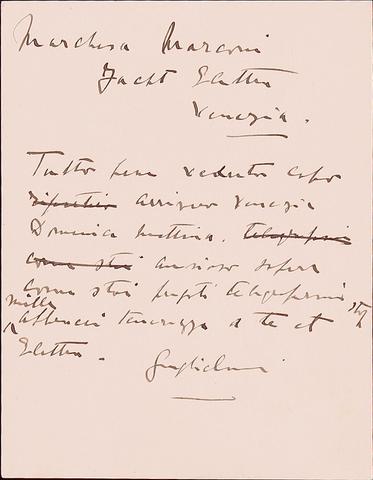 Marchesa Marconi
Yacht Elettra
Venezia.
Tutto bene veduto capo
arrivero Venezia
Domenica mattina. telegrafami
come stai ansioso sapere
come stai telegrafami
mille
abbracci tenerezze a te et
Elettra.
Guglielmo